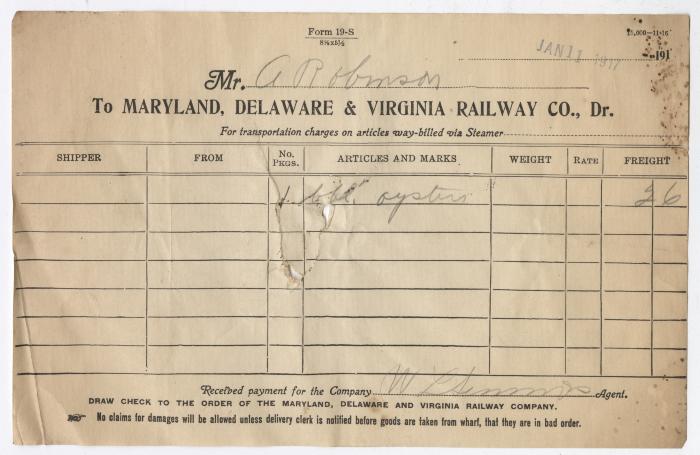 Form 19-S
8½x5½
25,000—11-16
JAN 11 1917
191
Mr. A Robinson
To MARYLAND, DELAWARE & VIRGINIA RAILWAY CO., Dr.
For transportation charges on articles way-billed via Steamer
SHIPPER FROM No. PKGS. ARTICLES AND MARKS WEIGHT RATE FREIGHT
1 bbl. oysters 26
Received payment for the Company W Agent.
DRAW CHECK TO THE ORDER OF THE MARYLAND, DELAWARE AND VIRGINIA RAILWAY COMPANY.
No claims for damages will be allowed unless delivery clerk is notified before goods are taken from wharf, that they are in bad order.